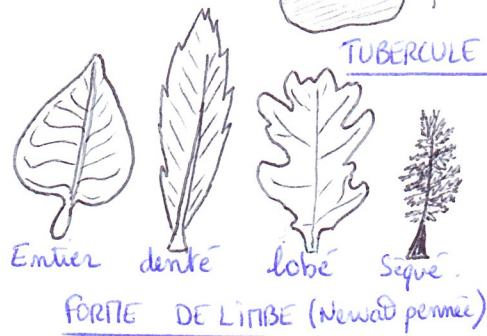 TUBERCULE
Entier denté lobé Séqué.
FORME DE LIMBE (Nervat° pennée)